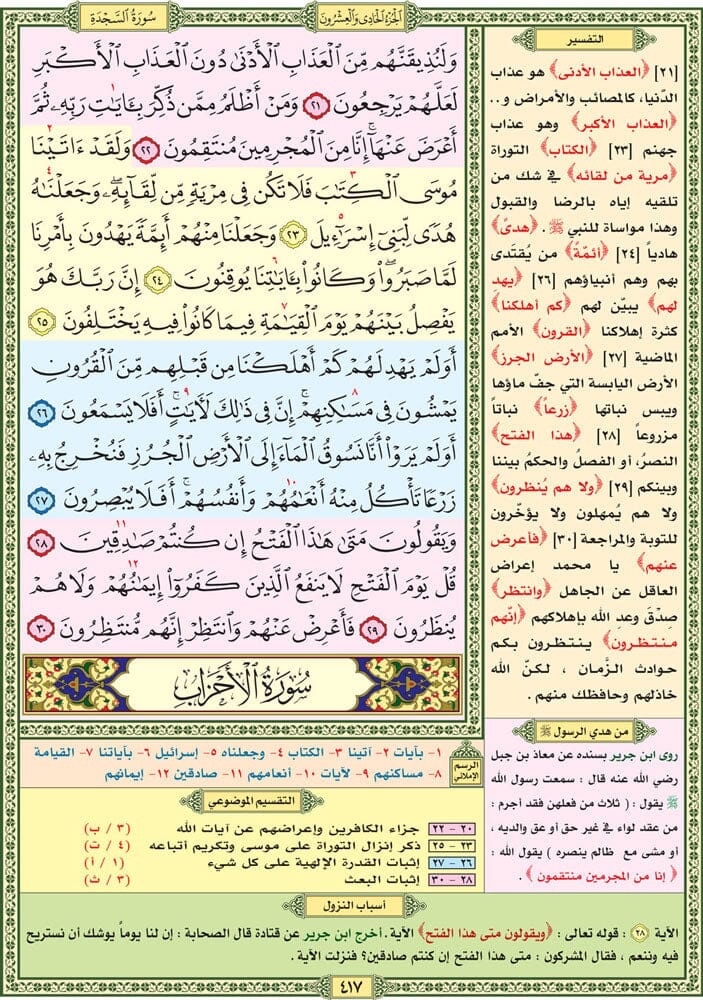 سُورَةُ السَّجْدَةِ
الجُزْءُ الحَادِي وَالعِشْرُونَ
وَلَنُذِيقَنَّهُم مِّنَ ٱلْعَذَابِ ٱلْأَدْنَىٰ دُونَ ٱلْعَذَابِ ٱلْأَكْبَرِ
لَعَلَّهُمْ يَرْجِعُونَ ٢١ وَمَنْ أَظْلَمُ مِمَّن ذُكِّرَ بِـَٔايَـٰتِ رَبِّهِۦ ثُمَّ
أَعْرَضَ عَنْهَآ ۚ إِنَّا مِنَ ٱلْمُجْرِمِينَ مُنتَقِمُونَ ٢٢ وَلَقَدْ ءَاتَيْنَا
مُوسَى ٱلْكِتَـٰبَ فَلَا تَكُن فِى مِرْيَةٍ مِّن لِّقَآئِهِۦ ۖ وَجَعَلْنَـٰهُ
هُدًى لِّبَنِىٓ إِسْرَٰٓءِيلَ ٢٣ وَجَعَلْنَا مِنْهُمْ أَئِمَّةً يَهْدُونَ بِأَمْرِنَا
لَمَّا صَبَرُوا۟ ۖ وَكَانُوا۟ بِـَٔايَـٰتِنَا يُوقِنُونَ ٢٤ إِنَّ رَبَّكَ هُوَ
يَفْصِلُ بَيْنَهُمْ يَوْمَ ٱلْقِيَـٰمَةِ فِيمَا كَانُوا۟ فِيهِ يَخْتَلِفُونَ ٢٥
أَوَلَمْ يَهْدِ لَهُمْ كَمْ أَهْلَكْنَا مِن قَبْلِهِم مِّنَ ٱلْقُرُونِ
يَمْشُونَ فِى مَسَـٰكِنِهِمْ ۚ إِنَّ فِى ذَٰلِكَ لَـَٔايَـٰتٍ ۖ أَفَلَا يَسْمَعُونَ ٢٦
أَوَلَمْ يَرَوْا۟ أَنَّا نَسُوقُ ٱلْمَآءَ إِلَى ٱلْأَرْضِ ٱلْجُرُزِ فَنُخْرِجُ بِهِۦ
زَرْعًا تَأْكُلُ مِنْهُ أَنْعَـٰمُهُمْ وَأَنفُسُهُمْ ۖ أَفَلَا يُبْصِرُونَ ٢٧
وَيَقُولُونَ مَتَىٰ هَـٰذَا ٱلْفَتْحُ إِن كُنتُمْ صَـٰدِقِينَ ٢٨
قُلْ يَوْمَ ٱلْفَتْحِ لَا يَنفَعُ ٱلَّذِينَ كَفَرُوٓا۟ إِيمَـٰنُهُمْ وَلَا هُمْ
يُنظَرُونَ ٢٩ فَأَعْرِضْ عَنْهُمْ وَٱنتَظِرْ إِنَّهُم مُّنتَظِرُونَ ٣٠
سُورَةُ الْأَحْزَابِ
التفسير
[٢١] ﴿العذاب الأدنى﴾ هو عذاب
الدّنيا، كالمصائب والأمراض و..
﴿العذاب الأكبر﴾ وهو عذاب
جهنم [٢٣] ﴿الكتاب﴾ التوراة
﴿مرية من لقائه﴾ في شك من
تلقيه إياه بالرضا والقبول
وهذا مواساة للنبي ﷺ. ﴿هدىً﴾
هادياً [٢٤] ﴿أئمّةً﴾ من يُقتدى
بهم وهم أنبياؤهم [٢٦] ﴿يهد
لهم﴾ يبيّن لهم ﴿كم أهلكنا﴾
كثرة إهلاكنا ﴿القرون﴾ الأمم
الماضية [٢٧] ﴿الأرض الجرز﴾
الأرض اليابسة التي جفّ ماؤها
ويبس نباتها ﴿زرعاً﴾ نباتاً
مزروعاً [٢٨] ﴿هذا الفتح﴾
النصرُ، أو الفصلُ والحكمُ بيننا
وبينكم [٢٩] ﴿ولا هم يُنظرون﴾
ولا هم يُمهلون ولا يؤخّرون
للتوبة والمراجعة [٣٠] ﴿فأعرض
عنهم﴾ يا محمد إعراض
العاقل عن الجاهل ﴿وانتظر﴾
صدْقَ وعد الله بإهلاكهم ﴿إنّهم
منتظرون﴾ ينتظرون بكم
حوادث الزّمان ، لكنّ الله
خاذلهم وحافظك منهم .
من هدي الرسول ﷺ
روى ابن جرير بسنده عن معاذ بن جبل
رضي الله عنه قال : سمعت رسول الله
ﷺ يقول : ( ثلاث من فعلهن فقد أجرم :
من عقد لواء في غير حق أو عق والديه ،
أو مشى مع ظالم ينصره ) يقول الله :
﴿ إنا من المجرمين منتقمون ﴾ .
الرسم الإملائي
١- بآيات ٢- آتينا ٣- الكتاب ٤- وجعلناه ٥- إسرائيل ٦- بآياتنا ٧- القيامة
٨- مساكنهم ٩- لآيات ١٠- أنعامهم ١١- صادقين ١٢- إيمانهم
التقسيم الموضوعي
٢٠ - ٢٢ جزاء الكافرين وإعراضهم عن آيات الله (٣ / ب)
٢٣ - ٢٥ ذكر إنزال التوراة على موسى وتكريم أتباعه (٤ / ت)
٢٦ - ٢٧ إثبات القدرة الإلهية على كل شيء (١ / أ)
٢٨ - ٣٠ إثبات البعث (٣ / ث)
أسباب النزول
الآية ٢٨ : قوله تعالى : ﴿ويقولون متى هذا الفتح﴾ الآية. أخرج ابن جرير عن قتادة قال الصحابة : إن لنا يوماً يوشك أن نستريح
فيه وننعم ، فقال المشركون : متى هذا الفتح إن كنتم صادقين؟ فنزلت الآية .
٤١٧